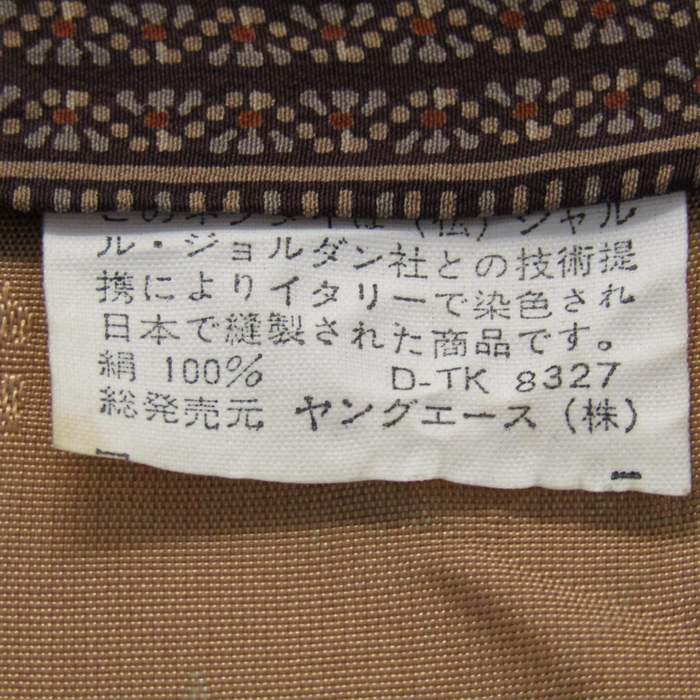 このネクタイは（仏）シャル
ル・ジョルダン社との技術提
携によりイタリーで染色され
日本で縫製された商品です。
絹 100% D-TK 8327
総発売元 ヤングエース（株）